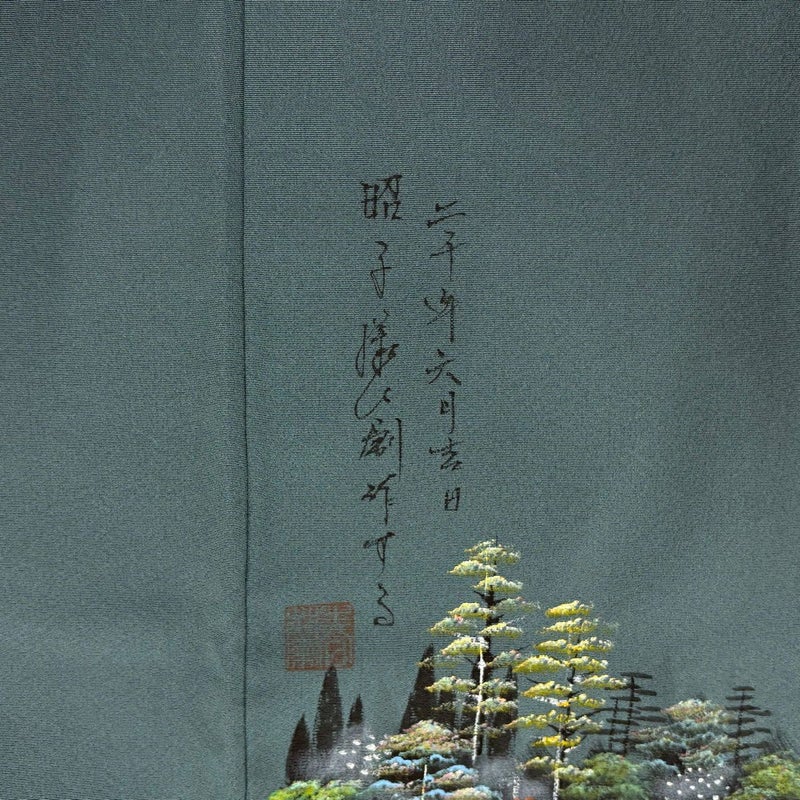 二千年六月吉日
昭子様に創作する